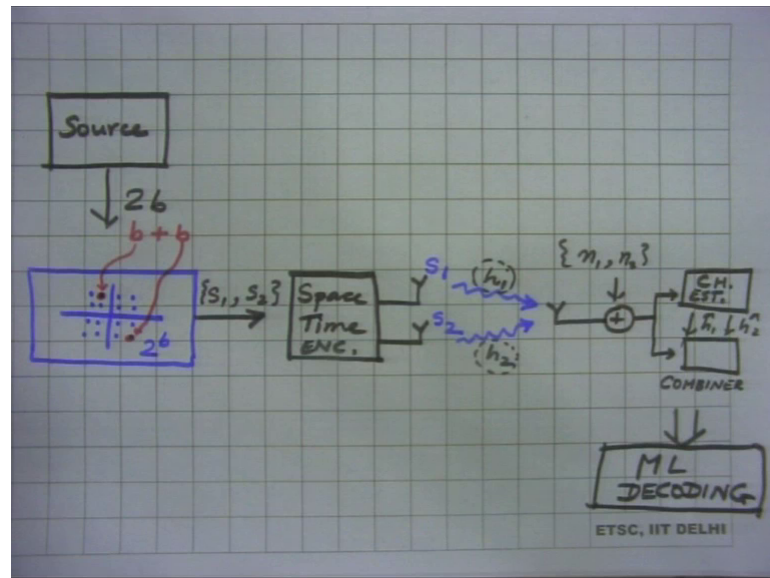 Source
2b
b + b
2^b
{S₁, S₂}
Space
Time
ENC.
S₁
S₂
(h₁)
(h₂)
{n₁, n₂}
+
CH.
EST.
ĥ₁ ĥ₂
COMBINER
ML
DECODING
ETSC, IIT DELHI